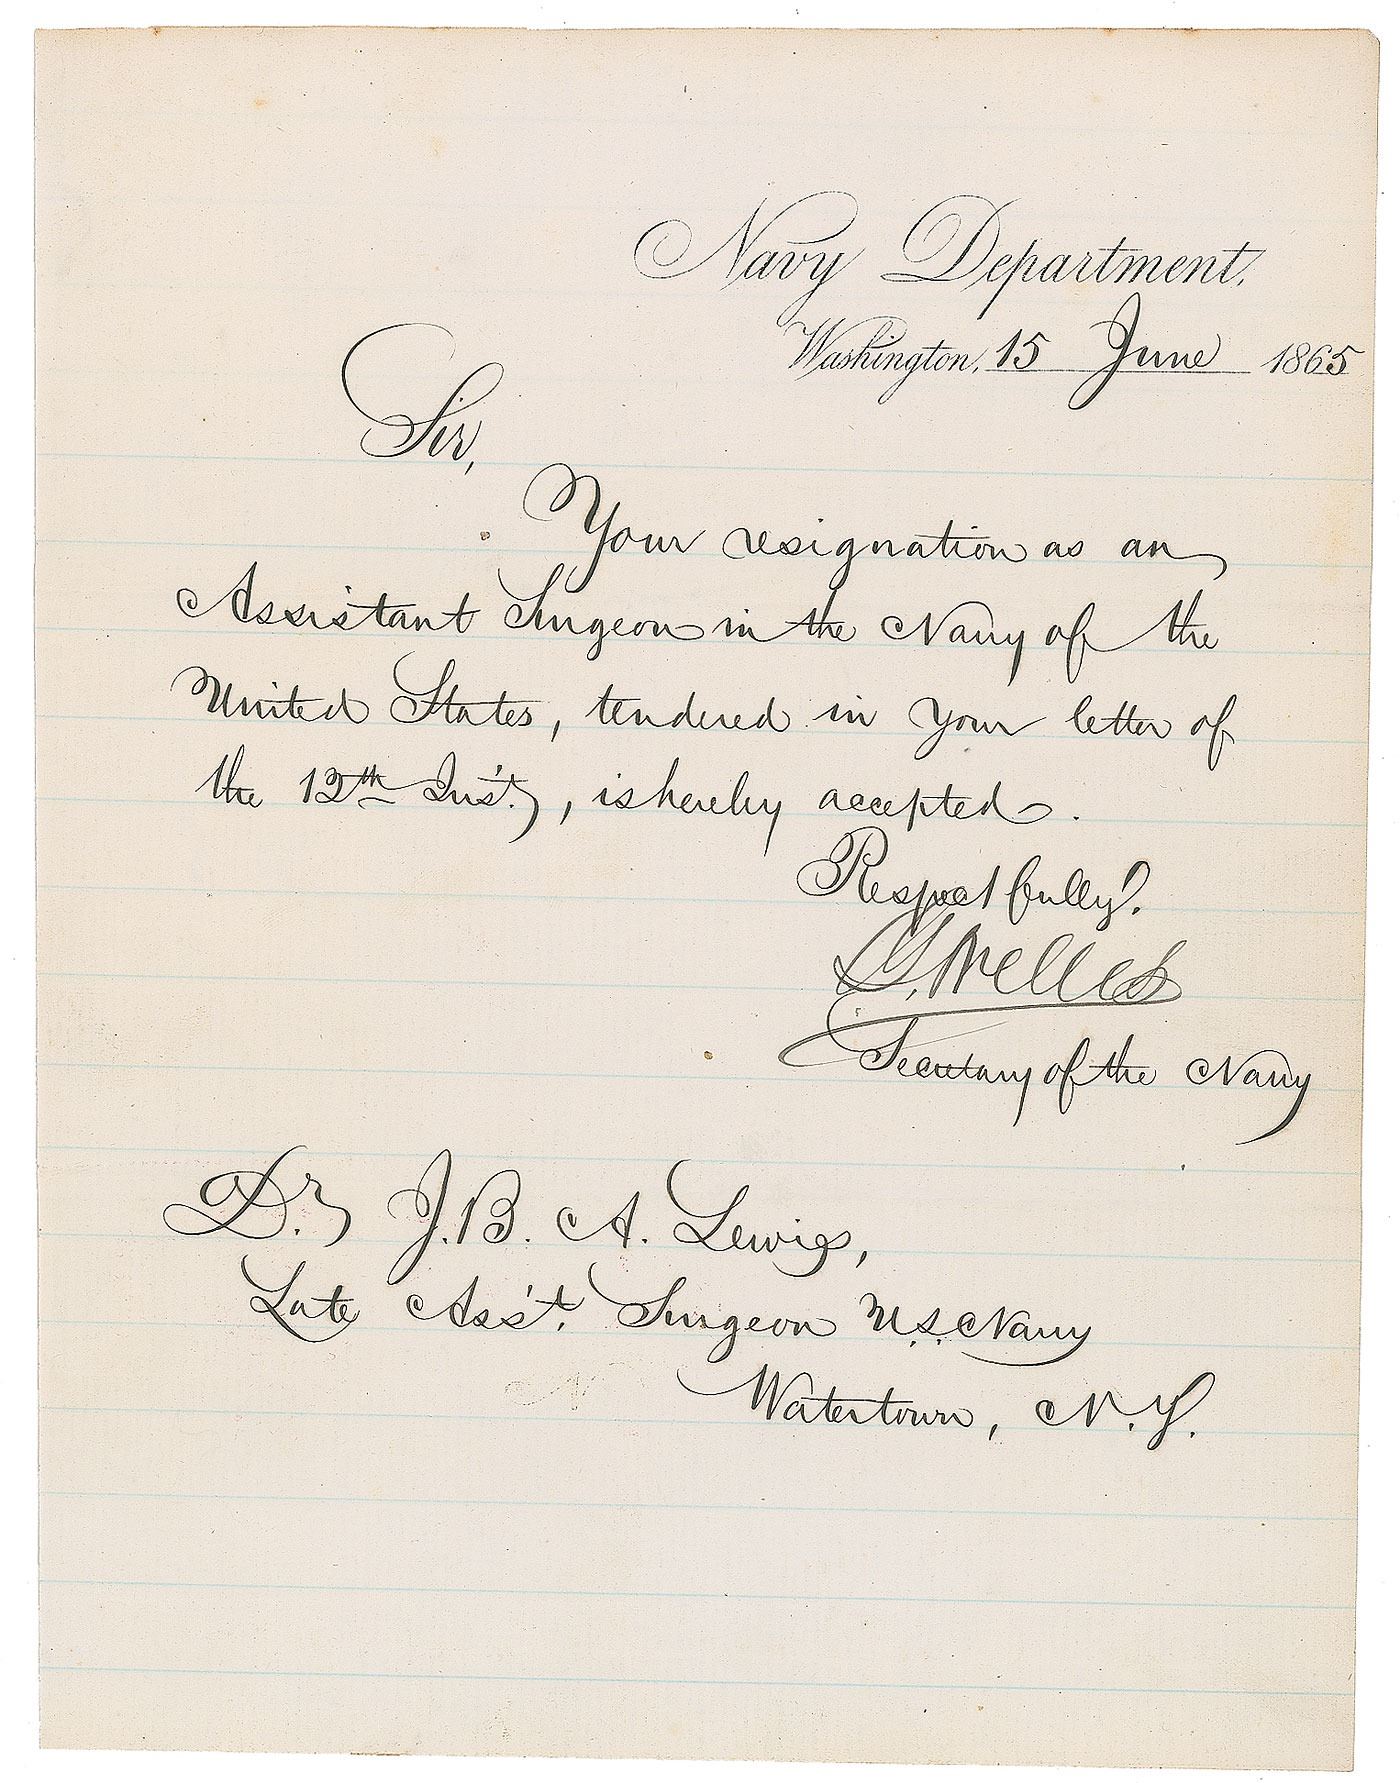 Navy Department,
Washington, 15 June 1865
Sir,
Your resignation as an
Assistant Surgeon in the Navy of the
United States, tendered in your letter of
the 12th Ins't, is hereby accepted.
Respectfully,
G. Welles
Secretary of the Navy
Dr J. B. A. Lewis,
Late Ass't. Surgeon U.S. Navy
Watertown, N.Y.